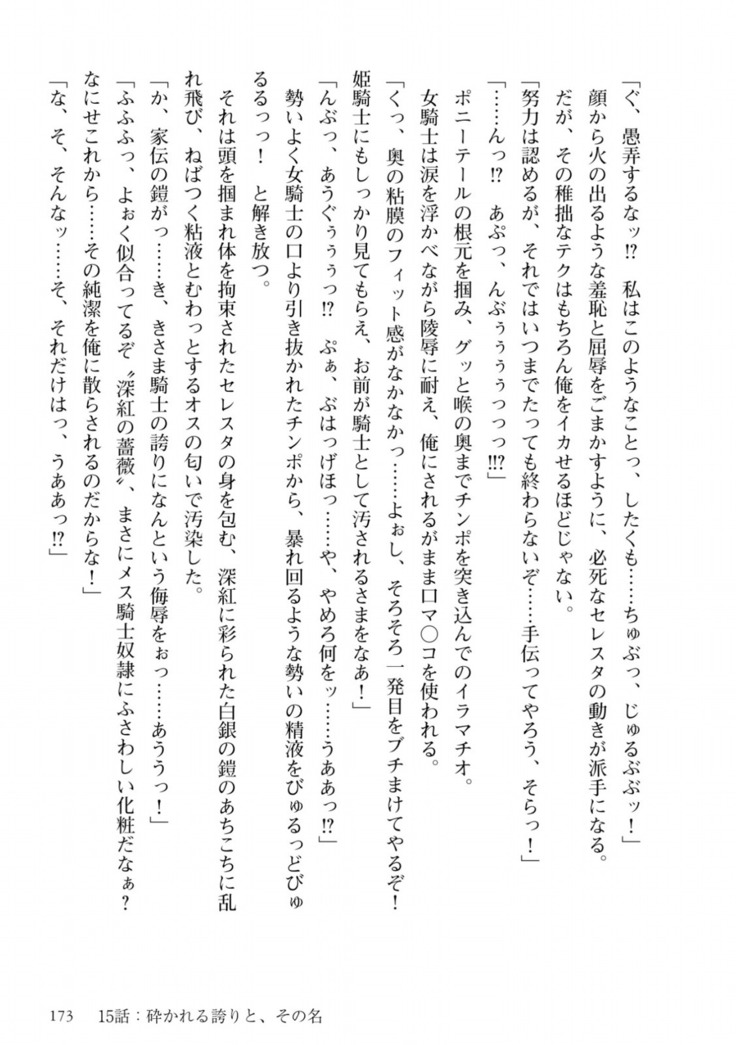 「ぐ、愚弄するなッ!?　私はこのようなことっ、したくも……ちゅぶっ、じゅるぶぶッ！」
　顔から火の出るような羞恥と屈辱をごまかすように、必死なセレスタの動きが派手になる。
　だが、その稚拙なテクはもちろん俺をイカせるほどじゃない。
「努力は認めるが、それではいつまでたっても終わらないぞ……手伝ってやろう、そらっ！」
「……んっ!?　あぷっ、んぶぅぅぅぅっっっ!!?」
　ポニーテールの根元を掴み、グッと喉の奥までチンポを突き込んでのイラマチオ。
　女騎士は涙を浮かべながら陵辱に耐え、俺にされるがまま口マ〇コを使われる。
「くっ、奥の粘膜のフィット感がなかなかっ……よぉし、そろそろ一発目をブチまけてやるぞ！
姫騎士にもしっかり見てもらえ、お前が騎士として汚されるさまをなあ！」
「んぶっ、あうぐぅぅぅっ!?　ぷぁ、ぶはっげほっ……や、やめろ何をッ……うああっ!?」
　勢いよく女騎士の口より引き抜かれたチンポから、暴れ回るような勢いの精液をびゅるっどびゅ
るるっっ！　と解き放つ。
　それは頭を掴まれ体を拘束されたセレスタの身を包む、深紅に彩られた白銀の鎧のあちこちに乱
れ飛び、ねばつく粘液とむわっとするオスの匂いで汚染した。
「か、家伝の鎧がっ……き、きさま騎士の誇りになんという侮辱をぉっ……あううっ！」
「ふふふっ、よぉく似合ってるぞ〝深紅の薔薇〟、まさにメス騎士奴隷にふさわしい化粧だなぁ？
なにせこれから……その純潔を俺に散らされるのだからな！」
「な、そ、そんなッ……そ、それだけはっ、うああっ!?」
173　15話：砕かれる誇りと、その名